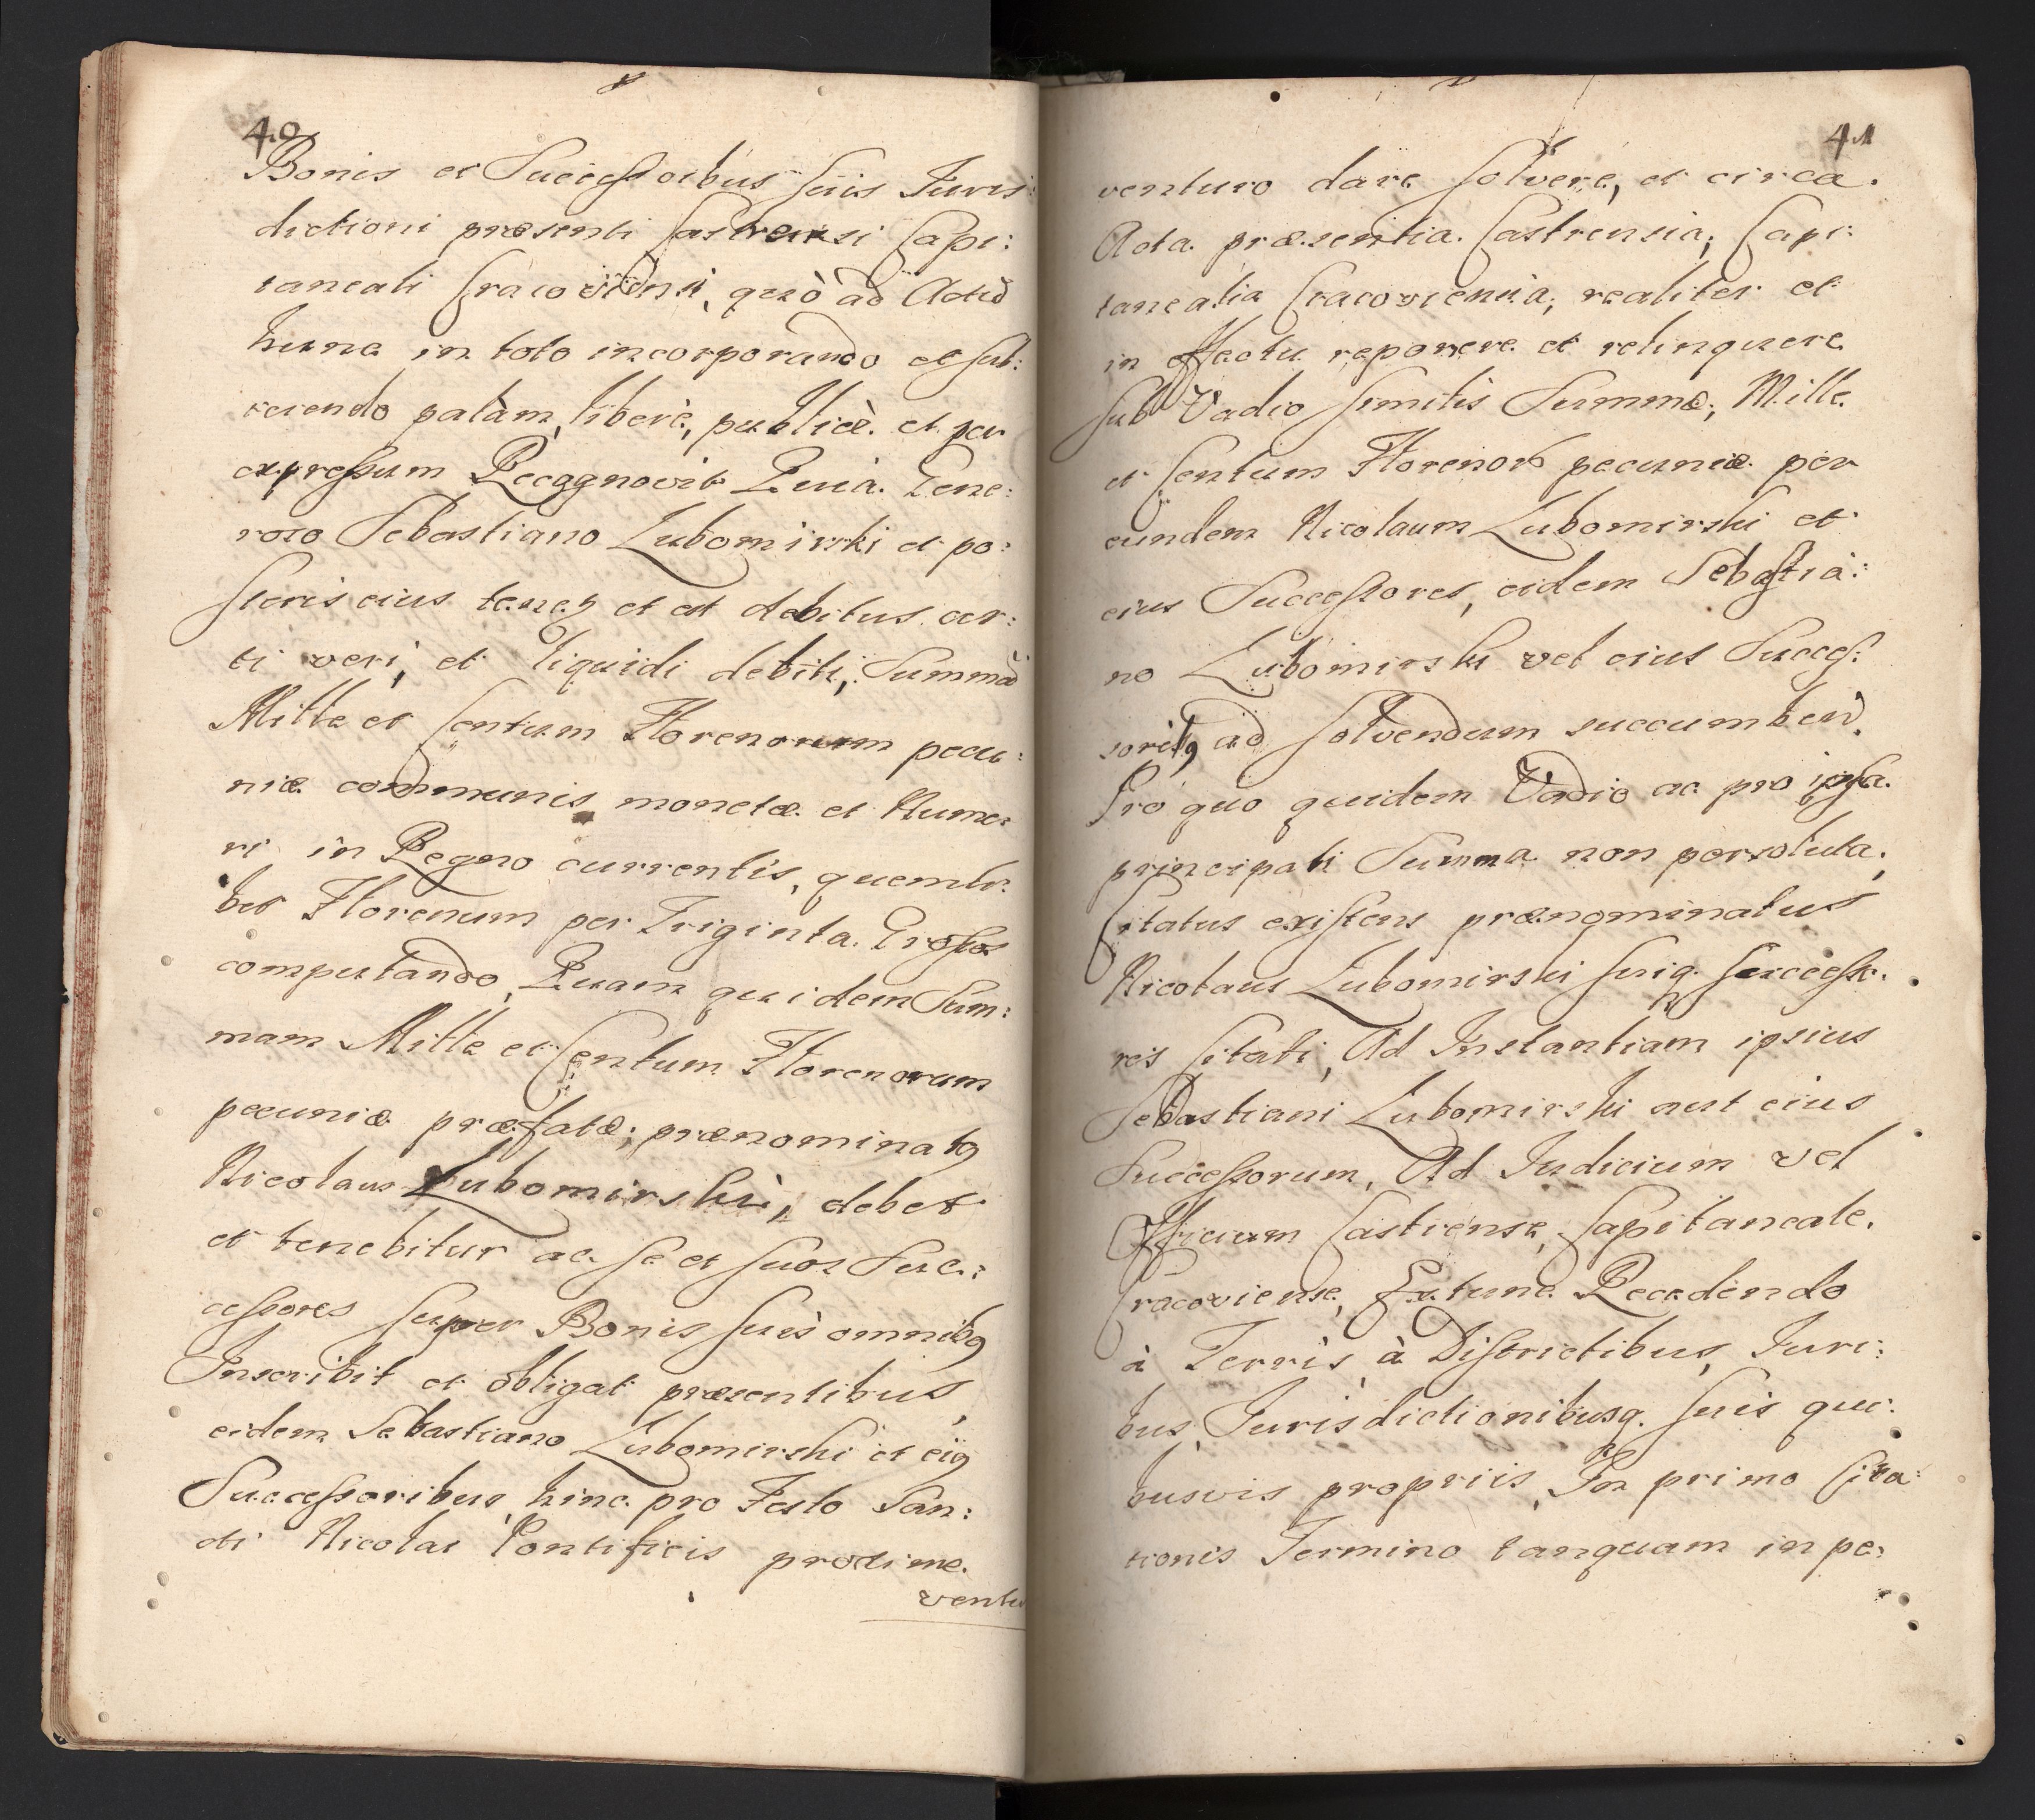 40
Bonis et Successoribus suis Juris:
dictioni præsenti Castrensi Capi:
taneali Cracoviensi, quò ad Actũ
hunc in toto incorporando et sub:
eiendo palàm, liberè, publicè et per
expressum Recognovit Quia Gene:
roso Sebastiano Lubomirski et po:
steris eius tenet9 et est debitus cer:
ti veri, et liquidi debiti, Summã
Mille et Centum Florenorum pecu:
niæ communis monetæ et Nume:
ri in Regno currentis, quemli:
bet Florenum per Triginta Grossos
computando, Quam quidem Sum:
mam Mille et Centum Florenorum
pecuniæ præfatæ; prænominat9
Nicolaus Lubomirski, debet
et tenebitur ac se et suos Suc:
cessores super Bonis suis omnib9
Inscribit et obligat præsentibus,
eidem Sebastiano Lubomirski et ei9
Successoribus, hinc pro Festo San:
cti Nicolai Pontificis proxime
ventu
41
venturo dare solvere, et circa
Acta præsentia Castrensia, Capi:
tanealia Cracoviensia, realiter et
in effectu reponere et relinquere
sub Vadio similis Summæ, Mille
et Centum Florenor pecuniæ per
eundem Nicolaum Lubomirski et
eius Successores, eidem Sebastia:
no Lubomirski vel eius Succes:
sorib9 ad solvendum succumbend.
Pro quo quidem Vadio ac pro ipsa
principali Summa non persoluta,
Citatus existens prænominatus
Nicolaus Lubomirski suiq. Successo:
res Citati, Ad Instantiam ipsius
Sebastiani Lubomirski aut eius
Successorum, Ad Judicium vel
Officium Castrense, Capitaneale,
Cracoviense, Extunc Recedendo
à Terris, à Districtibus, Juri:
bus, Jurisdictionibusq. suis qui:
busvis propriis, In primo Cita:
tionis Termino tanquam in pe: